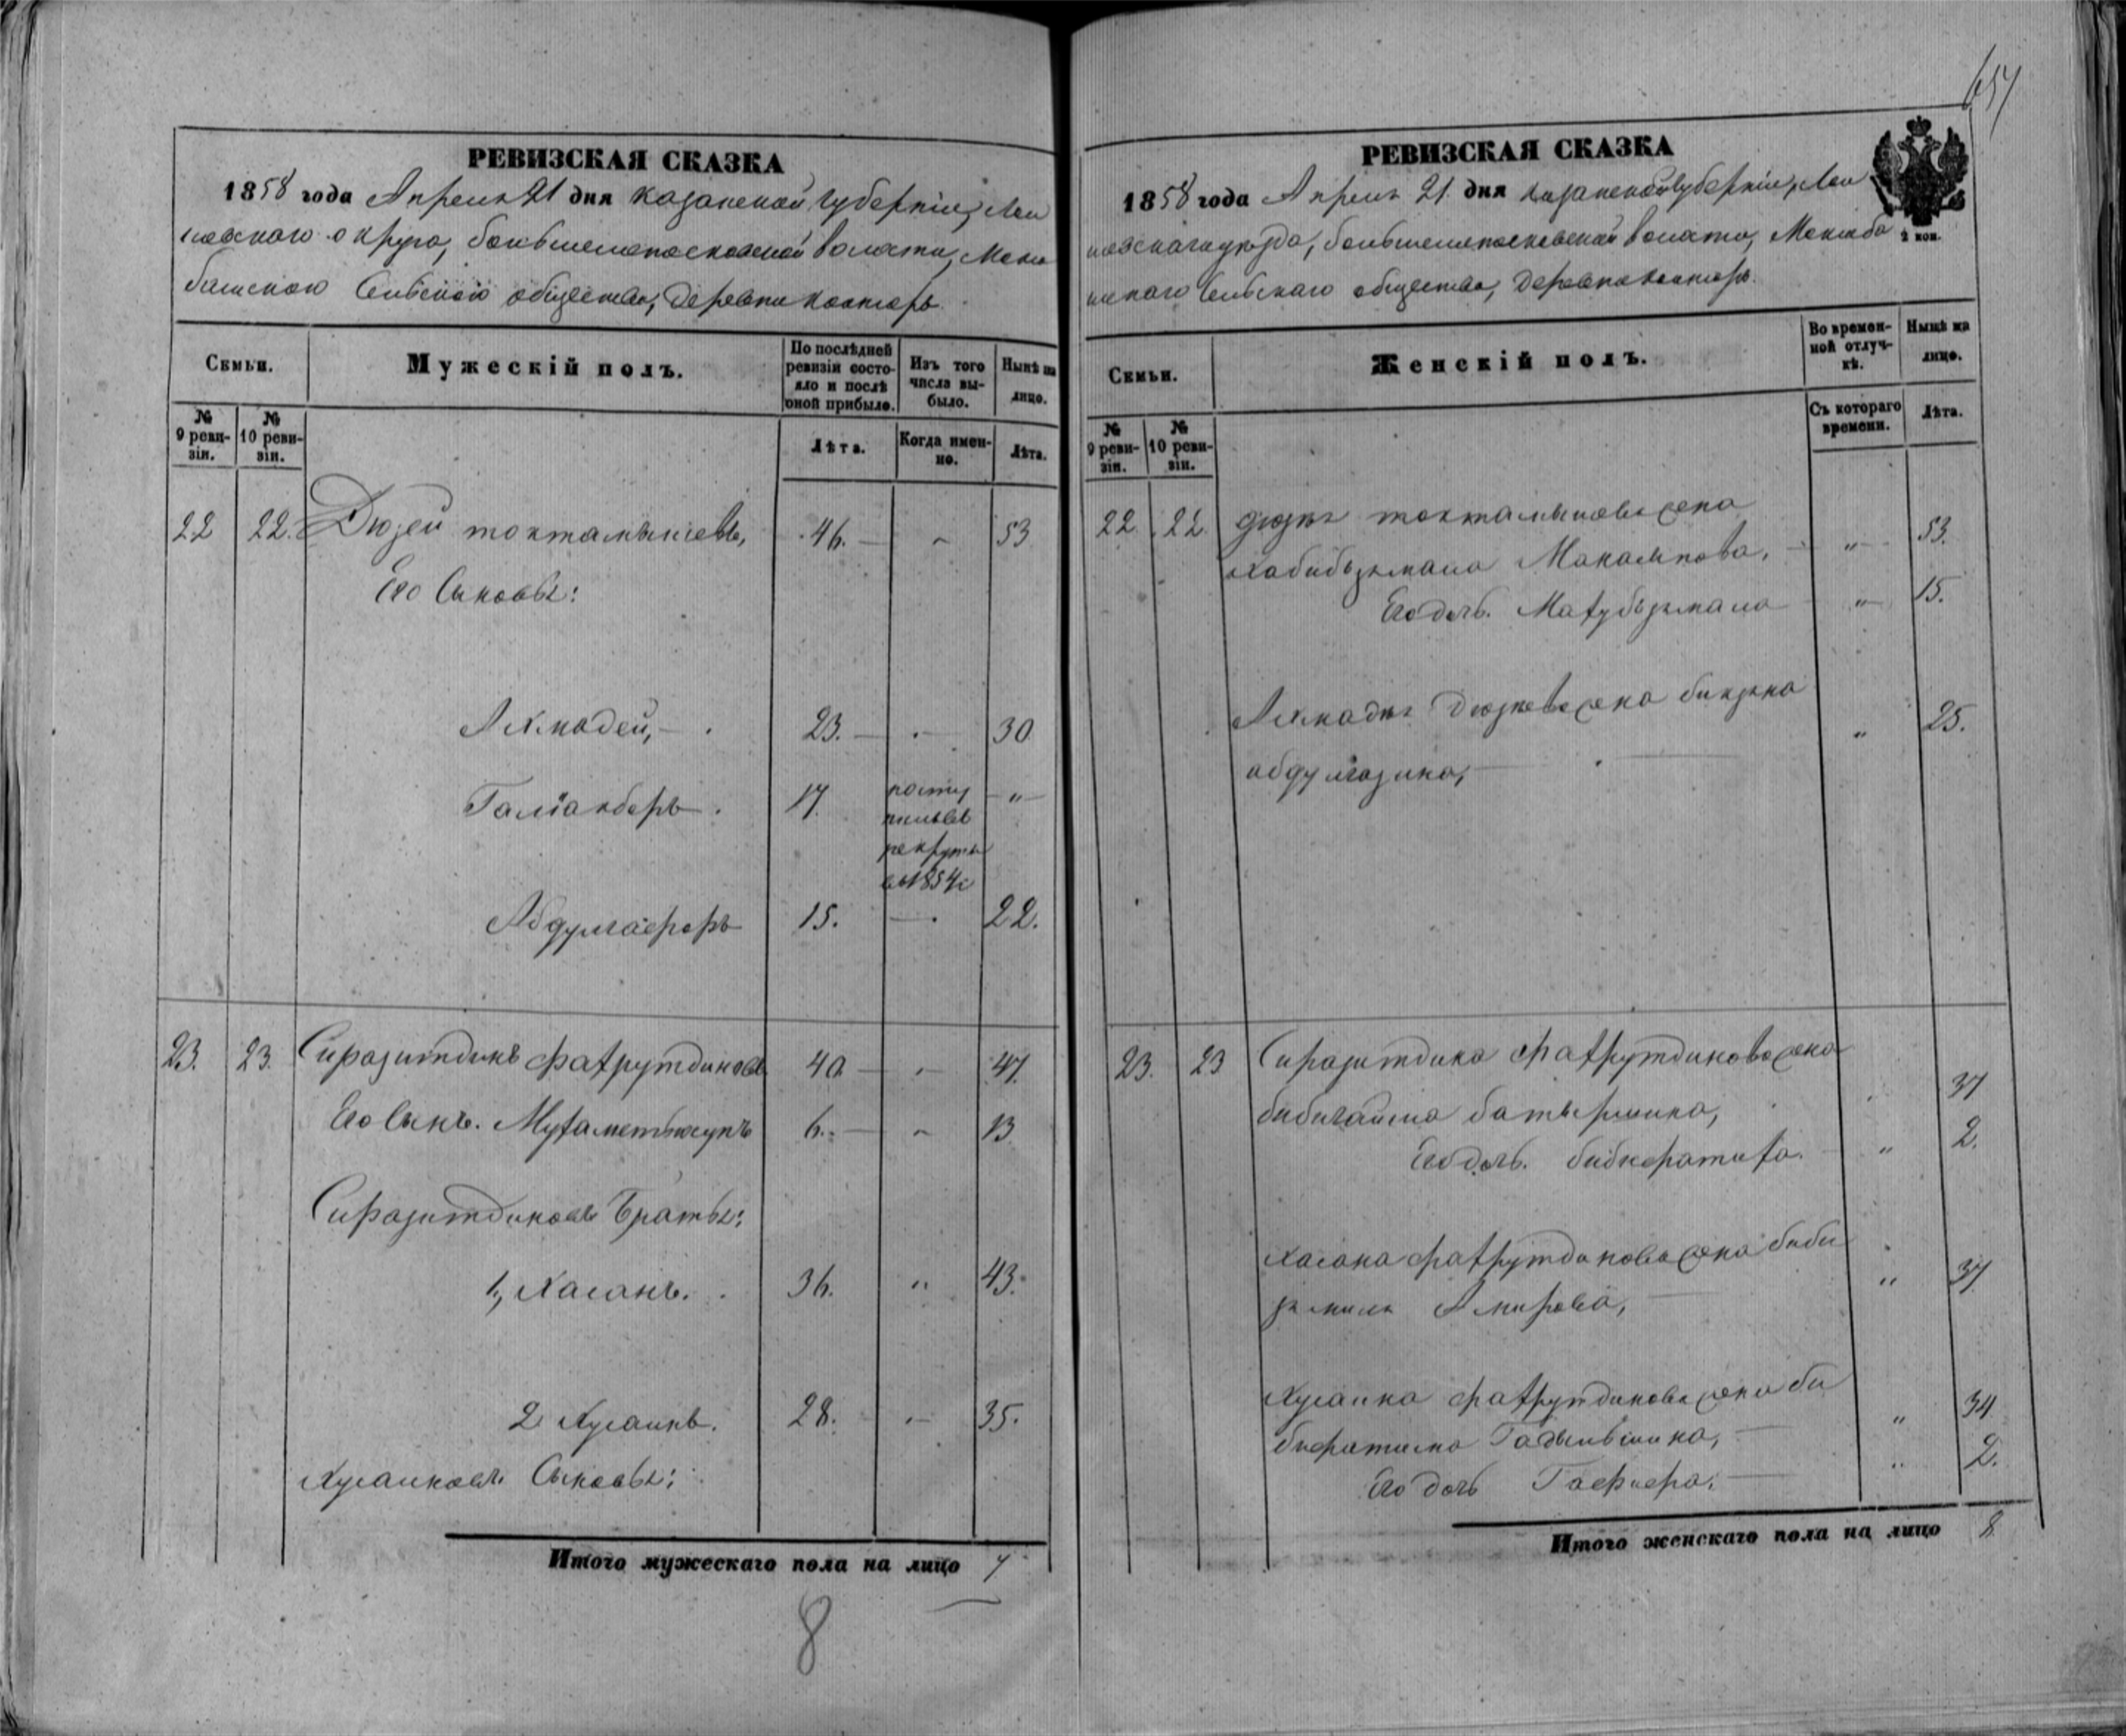 657
РЕВИЗСКАЯ СКАЗКА
1858 года Апреля 21 дня Казанской губернiи, Лаи
шевскаго округа, большемеласковской волости,
Сельскаго общества, деревни
Семьи.
Мужескiй полъ.
По послѣдней ревизiи состояло и послѣ оной прибыло.
Изъ того числа выбыло.
Нынѣ на лицо.
№ 9 ревизiи.
№ 10 ревизiи.
Лѣта.
Когда именно.
Лѣта.
22 22. Дюзей токтамышевъ, 46. — " 53
Его Сыновья:
Ахмадей, — 23. — " — 30
Галiакберъ. 17. посту
пилъ въ
рекруты
въ 1854 г — " —
Абдулгафаръ 15. — 22.
23. 23. Сиразитдинъ Фахрутдиновъ 40 — " — 47.
Его Сынъ. Мухаметьюсупъ 6. — " 13
Сиразитдиновы Братья:
1, Хасанъ. 36. " 43.
2 Хусаинъ. 28. " 35.
Хусаиновы Сыновья:
Итого мужескаго пола на лицо 7
8
РЕВИЗСКАЯ СКАЗКА
2 коп.
1858 года Апреля 21. дня Казанской губернiи, Лаи
шевскаго уезда, волости,
Сельскаго общества, деревни
Семьи.
Женскiй полъ.
Во временной отлучкѣ.
Нынѣ на лицо.
№ 9 ревизiи.
№ 10 ревизiи.
Съ котораго времени.
Лѣта.
22 22. дюзея токтамышева жена
хабибзямала — " 53.
Его дочь. Махубзямала — " — 15.
Ахмадея Дюзеева жена бикзяна
абдулгазина, — " 25.
23. 23 Сиразитдина Фахрутдинова жена
бибигайша батыршина, 37
Его дочь. — " 2.
Хасана фахрутдинова жена биби
Амирова, — " 37
Хусаина фахрутдинова жена би
бифатима Гадыльшина, — " 34
Его дочь — " 2.
Итого женскаго пола на лицо 8